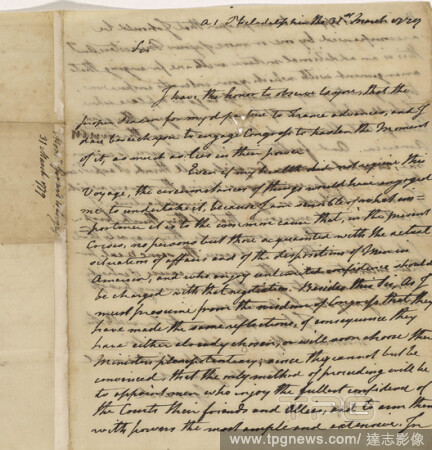 at Philadelphia the 31st March 1779
Sir
I have the honor to observe to you, that the
proper season for my departure to France advances, and I
dare beseech you to engage Congress to hasten the Moment
of it, as much as lies in their power.
Even if my health did not require this
Voyage, the circumstances of things would have engaged
me to undertake it, because I am sensible of what im=
=portance it is to the common cause that, in the present
Crises, no persons but those acquainted with the actual
situation of affairs and of the dispositions of Men in
America, and who enjoy unlimited confidence should
be charged with that negotiation. Besides this Sir, As I
must presume from the wisdom of Congress that, they
have made the same reflections, of consequence they
have either already chosen, or will soon choose their
Minister plenipotentiary; since they cannot but be
convinced, that the only method of proceeding will be
to appoint men who enjoy the fullest confidence of
the Courts their friends and Allies, and to arm them
with powers the most ample and extensive. In
31 March 1779
TPG
www.tpgnews.com / 達志影像